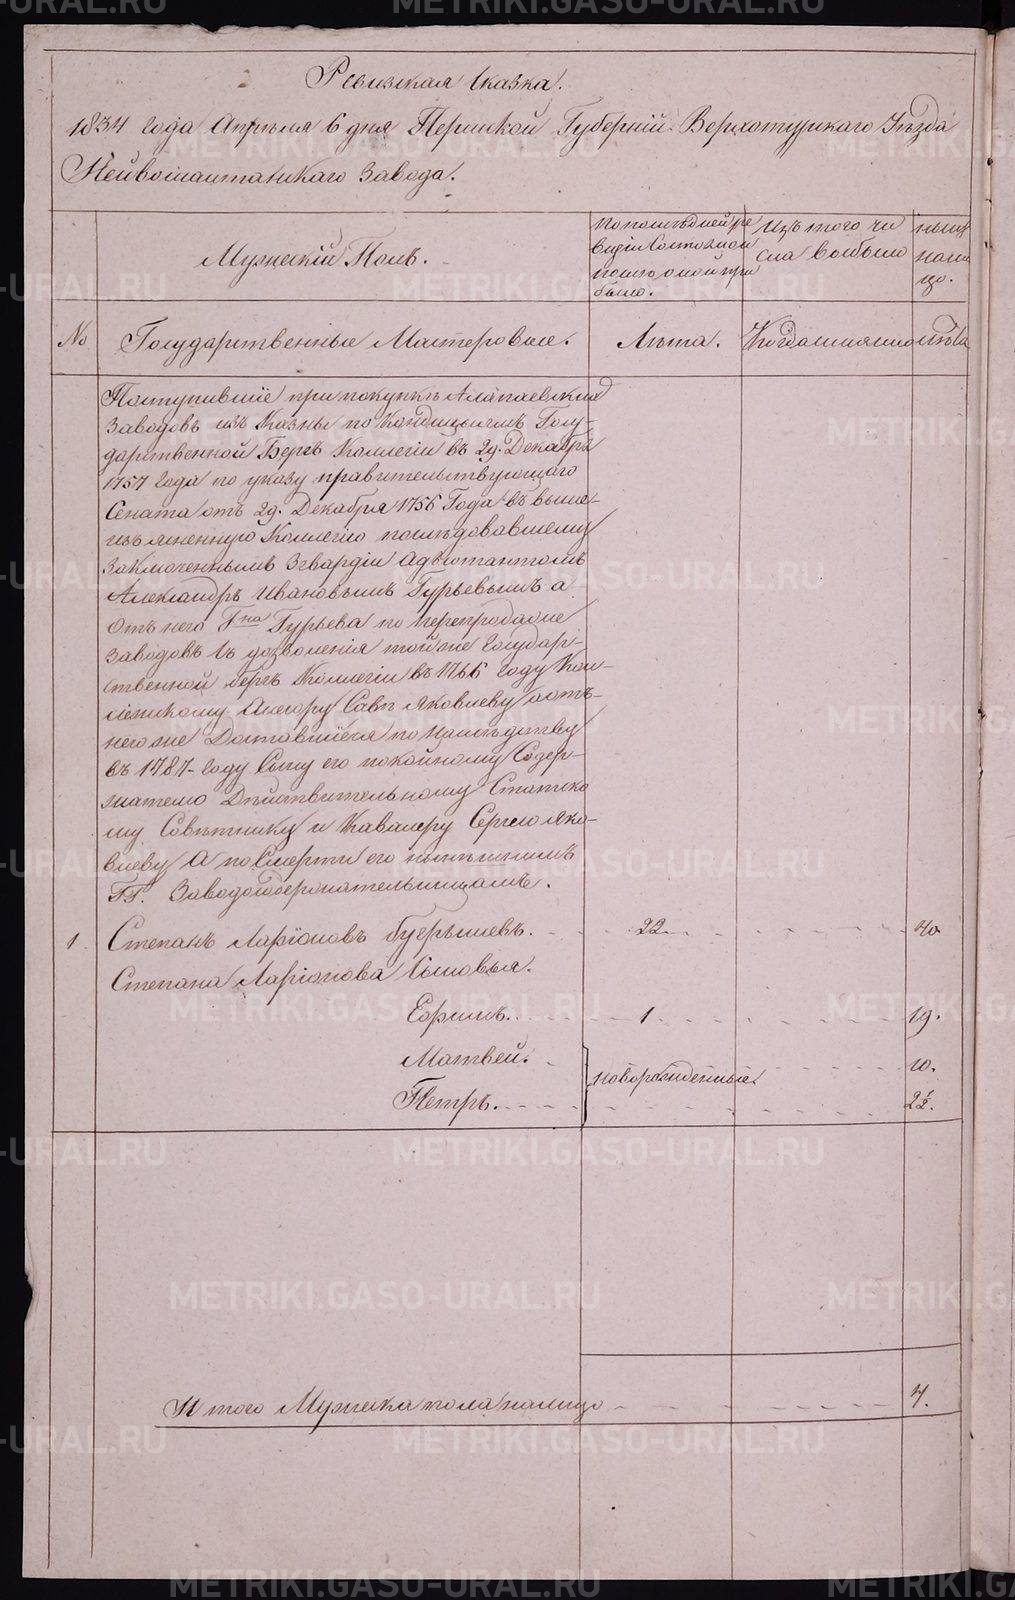 Ревизская Сказка.
1834 года Апреля 6 дня Пермской Губернiй Верхотурскаго Уезда
Нейвошаитанскаго Завода.
Мужескiй Полъ.
По последней ре
визiи Состояло и
после оной при
было.
Изъ того чи
сла выбыло
ныне
нали
цо.
№
Государственные Мастеровые.
Лета.
Когда именно
лета
Поступившiе при покупке Алапаевских
Заводовъ изъ Казны по Кондицiямъ Госу-
дарственной Бергъ Коллегiи въ 29. Декабря
1757 года по указу правительствующаго
Сената отъ 29. Декабря 1756 Года въ выше-
изъясненную Коллегiю последовавшему
Заключеннымъ Згвардiи Адъютантомъ
Александръ Ивановымъ Гурьевымъ а
Отъ него Гна Гурьева по перепродаже
Заводовъ съ дозволенiя той же Государ-
ственной бергъ Коллегiи въ 1766 году Кол-
лежскому Асесору Саве Яковлеву а отъ
него же Доставшiеся по наследству
въ 1787 году Сыну его покойному Содер-
жателю Действительному Статско
му Советнику и Кавалеру Сергею Яко-
влеву а по Смерти его нынешнимъ
ГГ. Заводосодержательницамъ.
1. Степанъ Ларiоновъ . . 22 40
Степана Ларiонова Сыновья.
Ефимъ. 1 19.
Матвей. 10.
новорожденные.
Петръ. 2½.
Итого Мужеска пола налицо 4.
METRIKI.GASO-URAL.RU